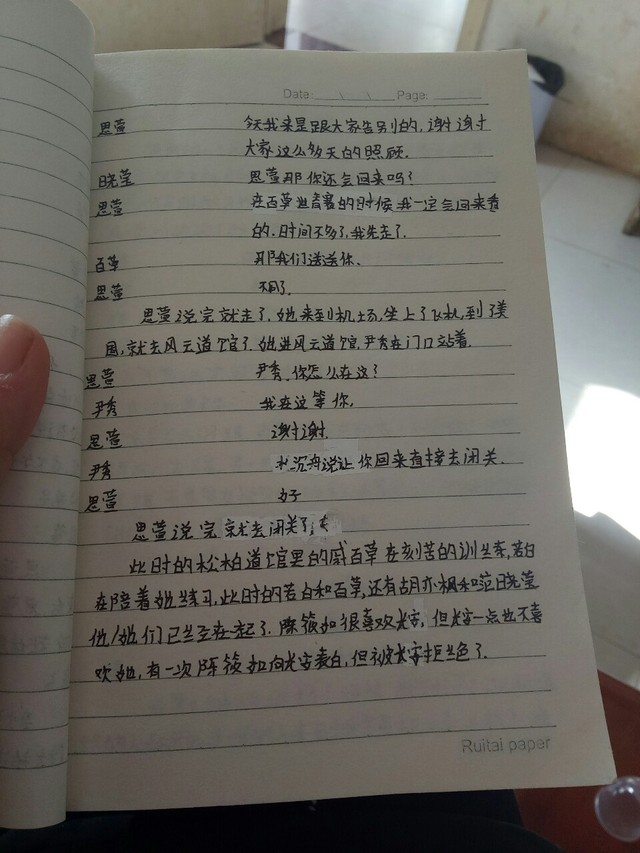 Date: Page:
思萱 今天我来是跟大家告别的,谢谢
大家这么多天的照顾.
晓莹 思萱那你还会回来吗?
思萱 在百草世青赛的时候我一定会回来看
的.时间不多了,我先走了.
百草 那我们送送你.
思萱 不用了.
思萱说完就走了.她来到机场,坐上了飞机,到了美
国,就去风云道馆了.她进风云道馆,尹秀在门口站着.
思萱 尹秀.你怎么在这?
尹秀 我在这等你.
思萱 谢谢.
尹秀 沉舟说让你回来直接去闭关.
思萱 好
思萱说完就去闭关了
此时的松柏道馆里的戚百草在刻苦的训练,若白
在陪着她练习,此时的若白和百草,还有胡亦枫和范晓莹
他/她们已经在一起了.陈筱如很喜欢长安,但长安一点也不喜
欢她,有一次陈筱如向长安表白,但被长安拒绝了.
Ruitai paper